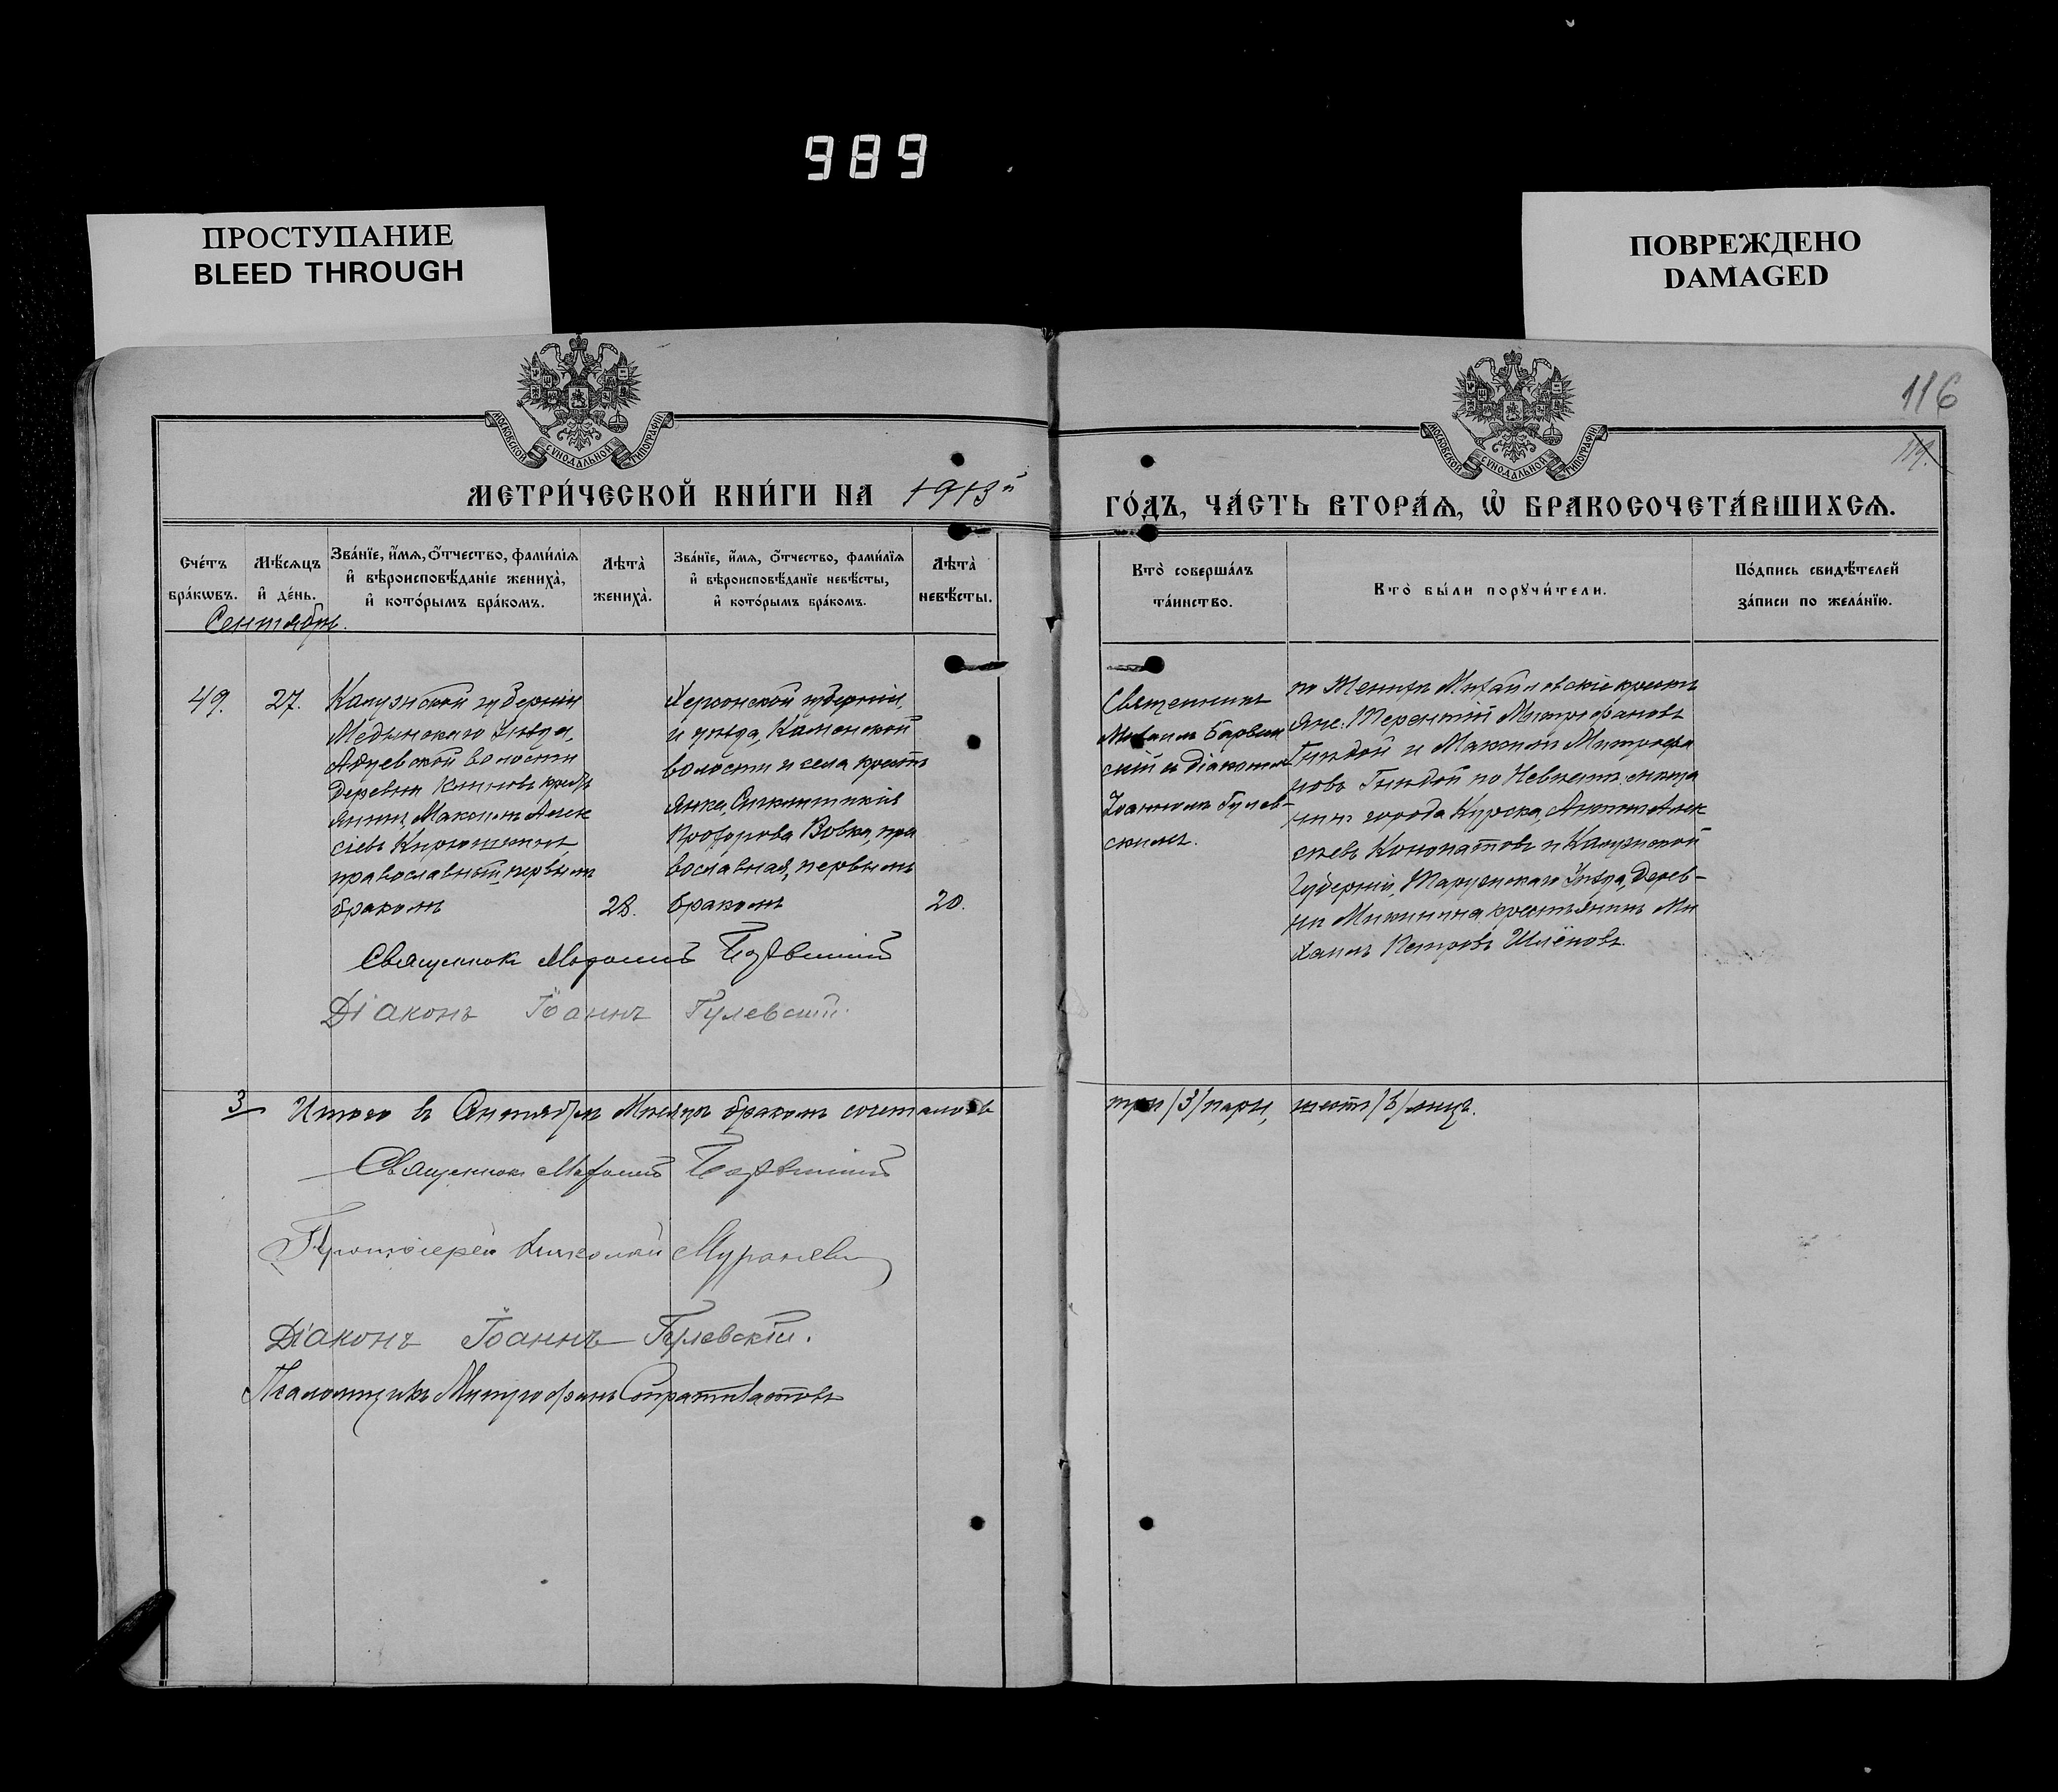 989
ПРОСТУПАНИЕ
BLEED THROUGH
ПОВРЕЖДЕНО
DAMAGED
116
МОСКОВСКОЙ СѴНОДАЛЬНОЙ ТИПОГРАФІИ
МОСКОВСКОЙ СѴНОДАЛЬНОЙ ТИПОГРАФІИ
МЕТРИ́ЧЕСКОЙ КНИ́ГИ НА 1913й
ГО́ДЪ, ЧА́СТЬ ВТОРА́Я, Ѡ БРАКОСОЧЕТА́ВШИХСЯ.
Сче́тъ
бра́кѡвъ.
Мѣ́сяцъ
и҆ де́нь.
Зва́нїе, и҆́мя, ѻ҆́тчество, фами́лїя
и҆ вѣроисповѣ́данїе жениха̀,
и҆ кото́рымъ бра́комъ.
Лѣта̀
жениха̀.
Зва́нїе, и҆́мя, ѻ҆́тчество, фами́лїя
и҆ вѣроисповѣ́данїе невѣ́сты,
и҆ кото́рымъ бра́комъ.
Лѣта̀
невѣ́сты.
Кто̀ соверша́лъ
та́инство.
Кто̀ бы́ли порꙋчи́тели.
По́дпись свидѣ́телей
за́писи по жела́нїю.
Сентябрь.
49.
27.
Калужской губерніи
Медынскаго Уѣзда,
волости
деревни крестъ
янинъ, Максимъ Алек
сѣевъ Кирюшкинъ,
православный, первымъ
бракомъ
28.
Херсонской губерніи
и уѣзда, Каменской
волости и села кресть
янка,
Прохорова Вовка, пра
вославная, первымъ
бракомъ
20.
Священникъ
Михаилъ Барвин
скій и діакономъ
Іоанномъ Гулев-
скимъ.
по Женихѣ Михайловскіе кресть
яне: Терентій Митрофановъ
Гниздой и Максимъ Митрофа
новъ Гниздой по Невѣстѣ:
города Курска, Алек
сѣевъ Конопатовъ и Калужской
Губерніи, Тарусскаго Уѣзда, Дерев-
ни крестьянинъ Ми
хаилъ Петровъ Шлёновъ.
Священникъ Михаилъ Барвинскій
Діаконъ Іоаннъ Гулевскій.
3 Итого въ Сентябрѣ Мѣсяцѣ бракомъ сочеталось
три /3/ пары, шесть /6/ лицъ.
Священникъ Михаилъ Барвинскій
Протоіерей Николай
Діаконъ Іоаннъ Гулевскій.
Псаломщикъ Митрофанъ Стратилатовъ